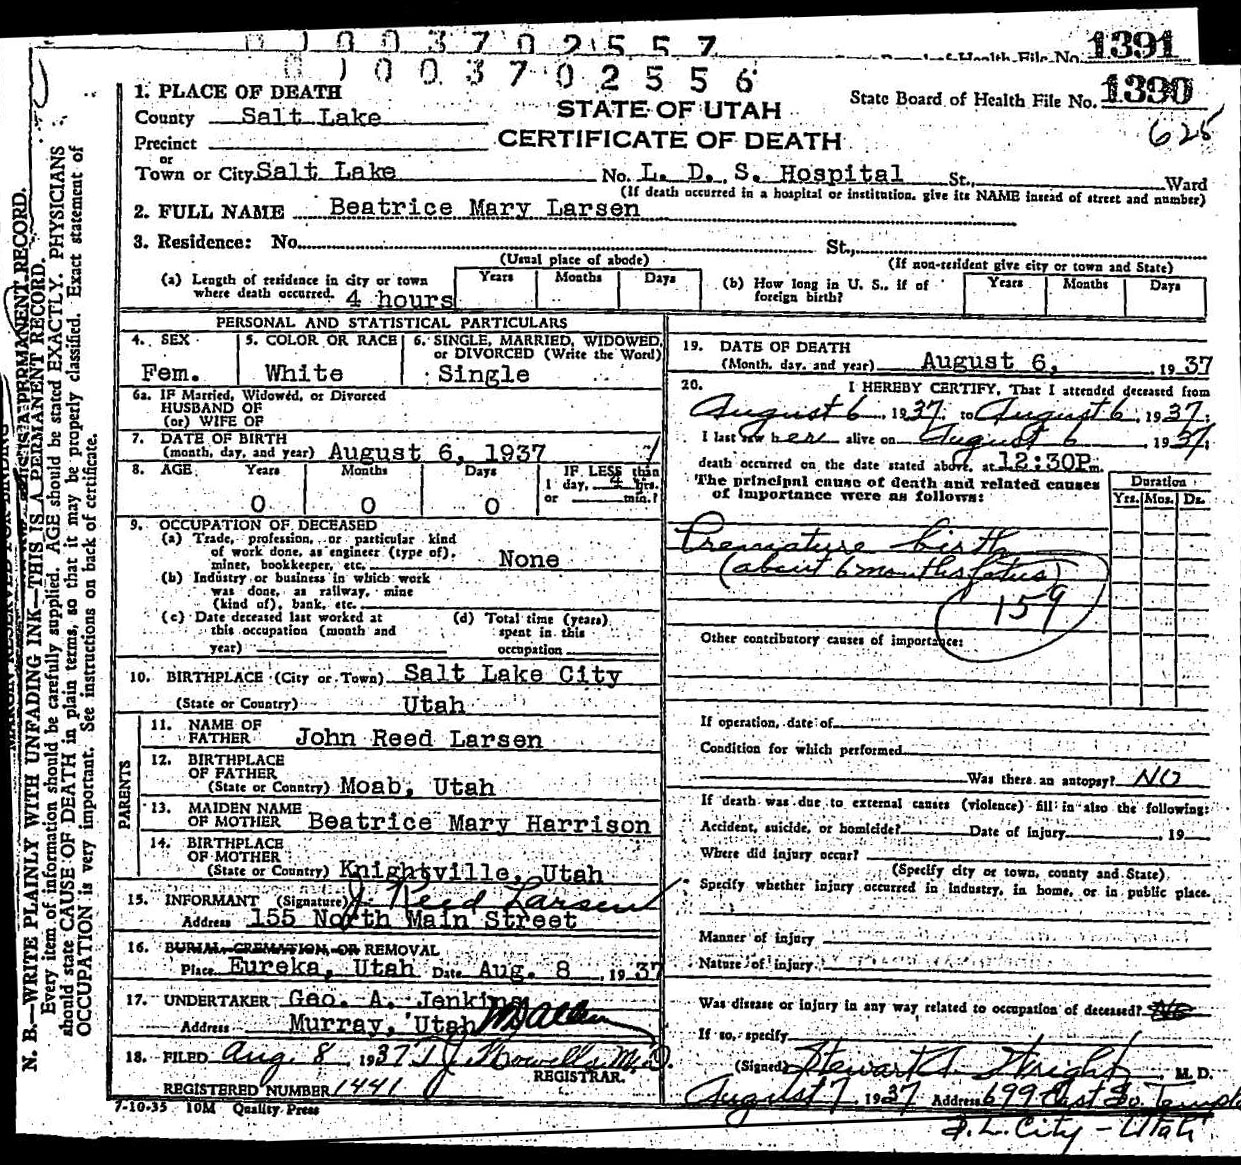 0 1 0 0 3 7 0 2 5 5 7
Board of Health File No. 1391
0 1 0 0 3 7 0 2 5 5 6
1. PLACE OF DEATH
County Salt Lake
STATE OF UTAH
CERTIFICATE OF DEATH
State Board of Health File No. 1390
625
Precinct
or
Town or City Salt Lake No. L. D. S. Hospital St., Ward
(If death occurred in a hospital or institution, give its NAME instead of street and number)
2. FULL NAME Beatrice Mary Larsen
3. Residence: No. St.,
(Usual place of abode) (If non-resident give city or town and State)
(a) Length of residence in city or town where death occurred. 4 hours Years Months Days
(b) How long in U. S., if of foreign birth? Years Months Days
PERSONAL AND STATISTICAL PARTICULARS
4. SEX Fem.
5. COLOR OR RACE White
6. SINGLE, MARRIED, WIDOWED, or DIVORCED (Write the Word) Single
6a. IF Married, Widowed, or Divorced
HUSBAND OF
(or) WIFE OF
7. DATE OF BIRTH
(month, day, and year) August 6, 1937
8. AGE Years Months Days IF LESS than
1 day, 4 hrs.
or min.?
0 0 0
9. OCCUPATION OF DECEASED
(a) Trade, profession, or particular kind
of work done, as engineer (type of),
miner, bookkeeper, etc. None
(b) Industry or business in which work
was done, as railway, mine
(kind of), bank, etc.
(c) Date deceased last worked at
this occupation (month and
year)
(d) Total time (years)
spent in this
occupation
10. BIRTHPLACE (City or Town) Salt Lake City
(State or Country) Utah
PARENTS
11. NAME OF
FATHER John Reed Larsen
12. BIRTHPLACE
OF FATHER
(State or Country) Moab, Utah
13. MAIDEN NAME
OF MOTHER Beatrice Mary Harrison
14. BIRTHPLACE
OF MOTHER
(State or Country) Knightville, Utah
15. INFORMANT (Signature) J. Reed Larsen
Address 155 North Main Street
16. BURIAL, CREMATION, OR REMOVAL
Place Eureka, Utah Date Aug. 8, 1937
17. UNDERTAKER Geo. A. Jenkins
Address Murray, Utah
18. FILED Aug. 8, 1937 T J Howells M.D.
REGISTRAR.
REGISTERED NUMBER 1441
7-10-35 10M Quality Press
19. DATE OF DEATH
(Month, day, and year) August 6, 1937
20. I HEREBY CERTIFY, That I attended deceased from
August 6, 1937, to August 6, 1937.
I last saw her alive on August 6 1937;
death occurred on the date stated above, at 12:30P m.
The principal cause of death and related causes
of importance were as follows:
Duration
Yrs. Mos. Ds.
Premature birth
(about 6 months fetus)
159
Other contributory causes of importance:
If operation, date of
Condition for which performed
Was there an autopsy? NO
If death was due to external causes (violence) fill in also the following:
Accident, suicide, or homicide? Date of injury , 19
Where did injury occur?
(Specify city or town, county and State)
Specify whether injury occurred in industry, in home, or in public place.
Manner of injury
Nature of injury
Was disease or injury in any way related to occupation of deceased? No
If so, specify
(Signed) Stewart A. Wright, M. D.
August 7, 1937 Address 699 East So. Temple
S. L. City - Utah
MARGIN RESERVED FOR BINDING
N. B.—WRITE PLAINLY WITH UNFADING INK—THIS IS A PERMANENT RECORD.
Every item of information should be carefully supplied. AGE should be stated EXACTLY. PHYSICIANS
should state CAUSE OF DEATH in plain terms, so that it may be properly classified. Exact statement of
OCCUPATION is very important. See instructions on back of certificate.